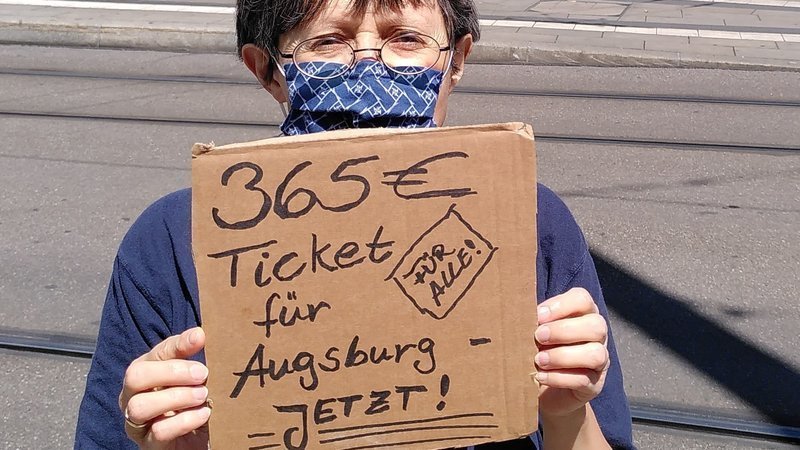 365 €
Ticket
FÜR
ALLE!
für
Augsburg -
JETZT!